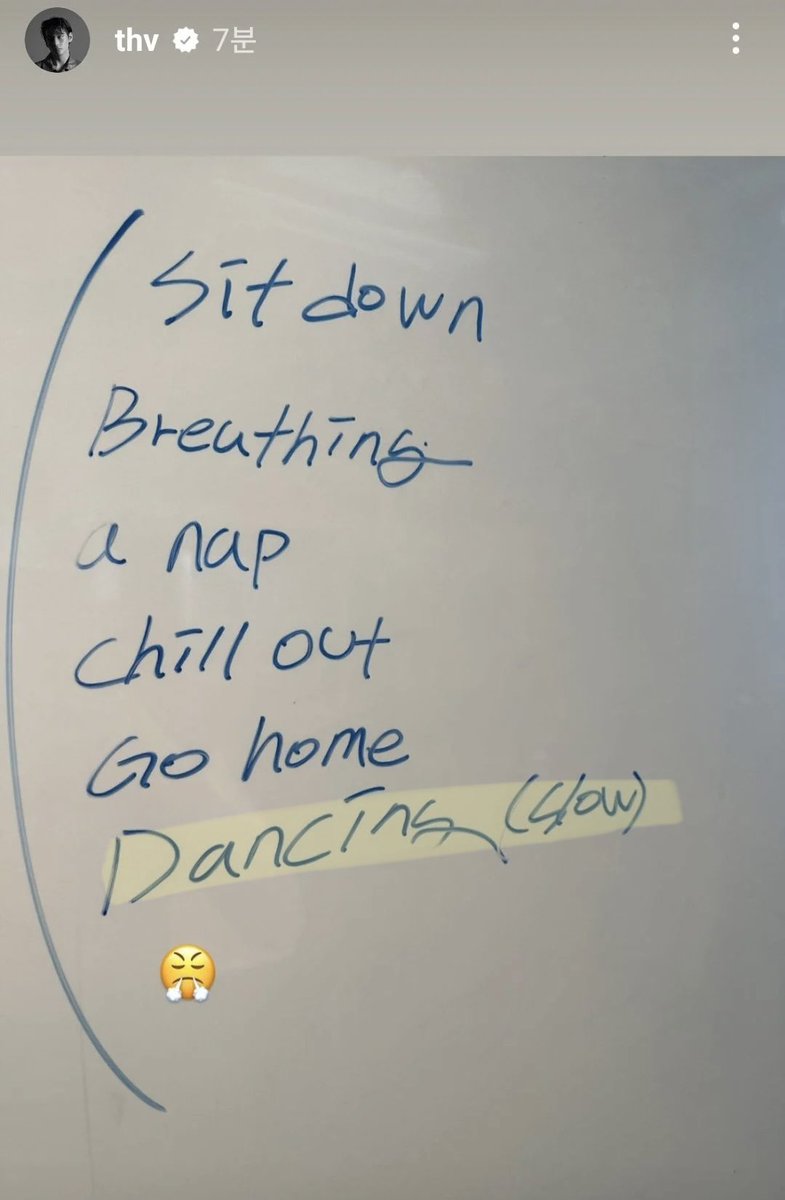 thv 7분
Sit down
Breathing
a nap
chill out
Go home
Dancing (slow)